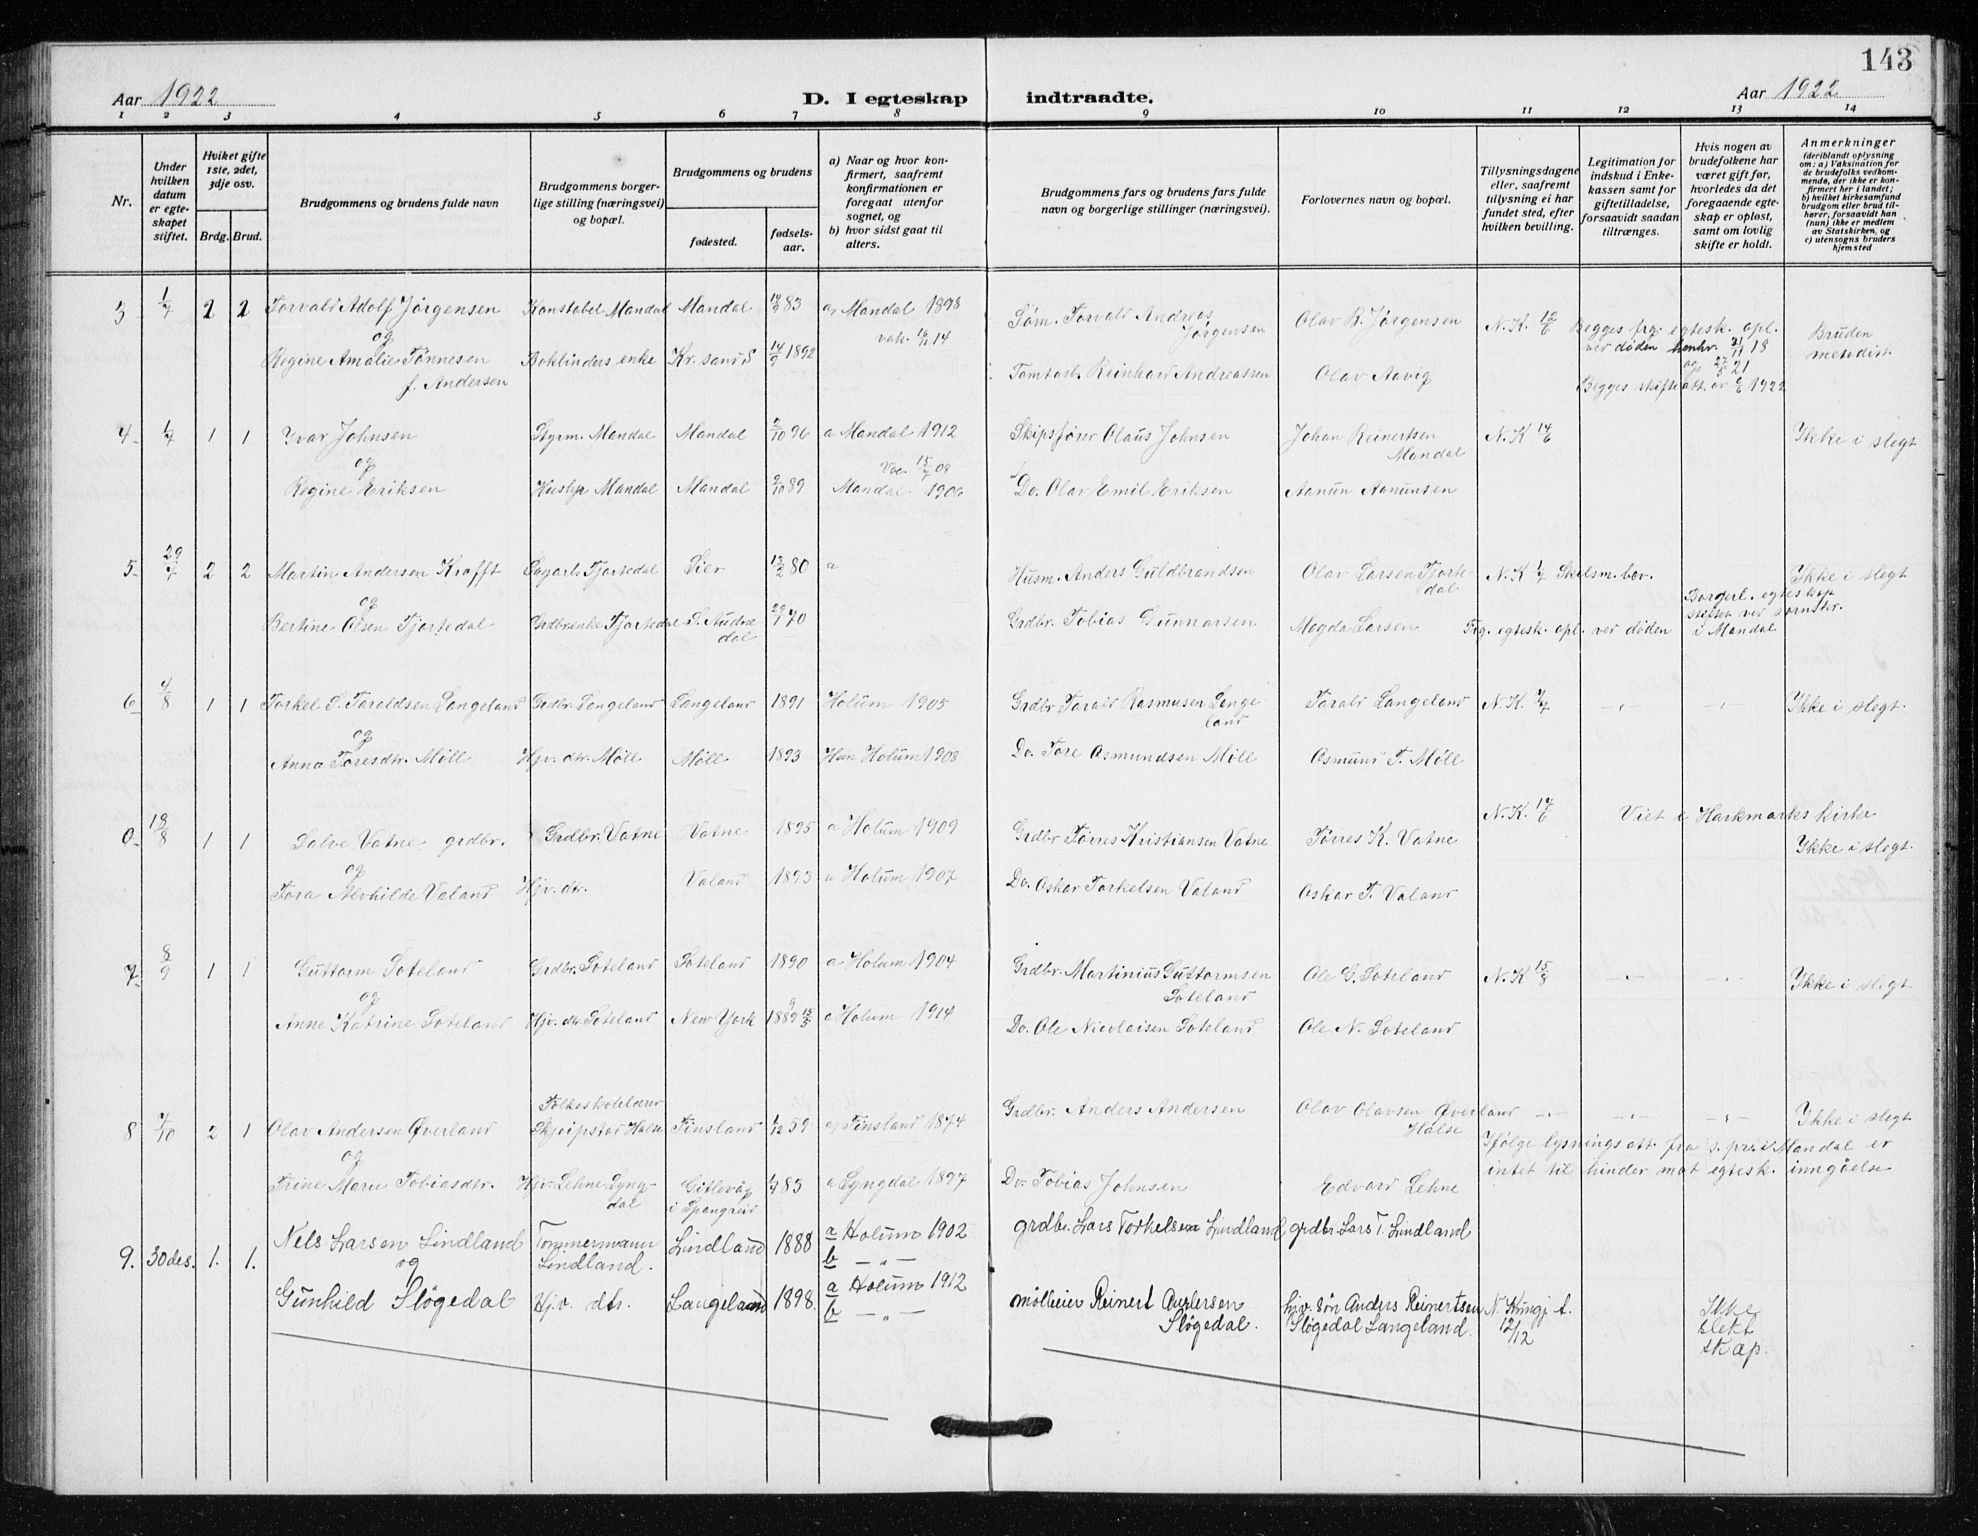 143
Aar 1922
D. I egteskap indtraadte.
Aar 1922
1 2 3 4 5 6 7 8 9 10 11 12 13 14
Nr.
Under hvilken datum er egteskapet stiftet.
Hviket gifte 1ste, 2det, 3dje osv.
Brdg. Brud.
Brudgommens og brudens fulde navn
Brudgommens borgerlige stilling (næringsvei) og bopæl.
Brudgommens og brudens
fødested.
fødselsaar.
a) Naar og hvor konfirmert, saafremt konfirmationen er foregaat utenfor sognet, og
b) hvor sidst gaat til alters.
Brudgommens fars og brudens fars fulde navn og borgerlige stillinger (næringsvei).
Forlovernes navn og bopæl.
Tillysningsdagene eller, saafremt tillysning ei har fundet sted, efter hvilken bevilling.
Legitimation for indskud i Enkekassen samt for giftetilladelse, forsaavidt saadan tiltrænges.
Hvis nogen av brudefolkene har været gift før, hvorledes da det foregaaende egteskap er opløst, samt om lovlig skifte er holdt.
Anmerkninger (deriblandt oplysning om: a) Vaksination for de brudefolks vedkommende, der ikke er konfirmert her i landet; b) hvilket kirkesamfund brudgom eller brud tilhører, forsaavidt han (hun) ikke er medlem av Statskirken, og c) utensogns bruders hjemsted
3 1/7 2 2 Torvald Adolf Jørgensen Konstabel Mandal Mandal 83 a, Mandal 1898 Søm. Torvald Andreas Jørgensen Olav B. Jørgensen N. K. 12/6 Begges frg. egtesk. opl. ved døden henhv. 21/11 18 Bruden metodist.
og
vak. 14
og 27/5 21
Regine Amalie Tønnesen f. Andersen Boktinders enke Kr.sand S 14/9 1892 Tomtarb. Reinhard Andreassen Olav Aavig Begges skifteatt. av 6/6 1922
4- 1/7 1 1 Yvar Johnsen Styrm. Mandal Mandal 2/10 96 a Mandal 1912 Skipsfører Olaus Johnsen Johan Reinertsen Mandal N. K 14/6 Ikke i slegt
og
Vac. 15/7 08
Regine Eriksen Hushp Mandal Mandal 2/10 89 Mandal 1906 Do. Olav Emil Eriksen Aanun Aanunsen
5- 29/7 2 2 Martin Andersen Krafft Sagarb. Tjortedal Lier 13/2 80 a Husm. Anders Guldbrandsen Olav Larsen Tjortedal N. K 1/7 Skilsm. bev. Ikke i slegt
og
Borgerl. egteskap stiftet ved sornskr. i Mandal
Bertine Olsen Tjortedal Grdbrenke Tjortedal S. Audnedal 29/7 70 Grdbr. Tobias Gunnarsen Magda Larsen Frg. egtesk. opl. ved døden
6- 4/8 1 1 Torkel S. Taraldsen Langeland Grdbr. Langeland Langeland 1891 Holum 1905 Grdbr Tarald Rasmusen Langeland Tarald Langeland N. K. 7/7 -,- -,- Ikke i slegt.
og
Anna Toresdtr. Møll Hjv. dtr. Møll Møll 1893 Hun Holum 1908 Do. Tore Osmundsen Møll Osmund T. Møll
0- 18/8 1 1 Salve Vatne grdbr. Grdbr. Vatne Vatne 1895 a Holum 1909 Grdbr Tørres Kristiansen Vatne Tørres K. Vatne N. K. 14/6 Viet i Harkmarks kirke
Ikke i slegt.
og
Tora Alvhilde Valand Hjv. dtr. Valand 1893 a Holum 1907 Do. Oskar Torkelsen Valand Oskar T. Valand
7- 8/9 1 1 Guttorm Soteland Grdbr. Soteland Soteland 1890 a Holum 1904 Grdbr. Martinius Guttormsen Soteland Ole G. Soteland N. K 15/8 -,- -,- Ikke i slegt
og
Anne Katrine Soteland Hjv. dtr Soteland New York 1889 15/3 a Holum 1914 Do. Ole Nicolaisen Soteland Ole N. Soteland
8 7/10 2 1 Olav Andersen Øverland Folkeskolelærer Skjeipstad Halse Finsland 1/12 59 a, Finsland 1874 Grdbr. Anders Andersen Olav Olavsen Øverland Halse -,- -,- -,- Ikke i slegt
og
Ifølge lysningsatt. fra s. pr. i Mandal er intet til hinder mot egtesk. inngåelse
Trine Marie Tobiasdtr. Hjv. Lehne Lyngdal Gitlevåg i Spangreid 1/7 83 a Lyngdal 1897 Do. Tobias Johnsen Edvard Lehne
9. 30 des. 1. 1. Nels Larsen Lindland Tømmermann Lindland. Lindland 1888 a Holum 1902 b -„- grdbr. Lars Torkelsen Lindland grdbr. Lars T. Lindland
og
Gunhild Sløgedal Hjv. dtr. Langeland 1898. a Holum 1912 b -„- mølleier Reinert Andersen Sløgedal. hjv. søn Anders Reinertsen Sløgedal Langeland. N. Kungj. f. 12/12 Ikke slektskap.